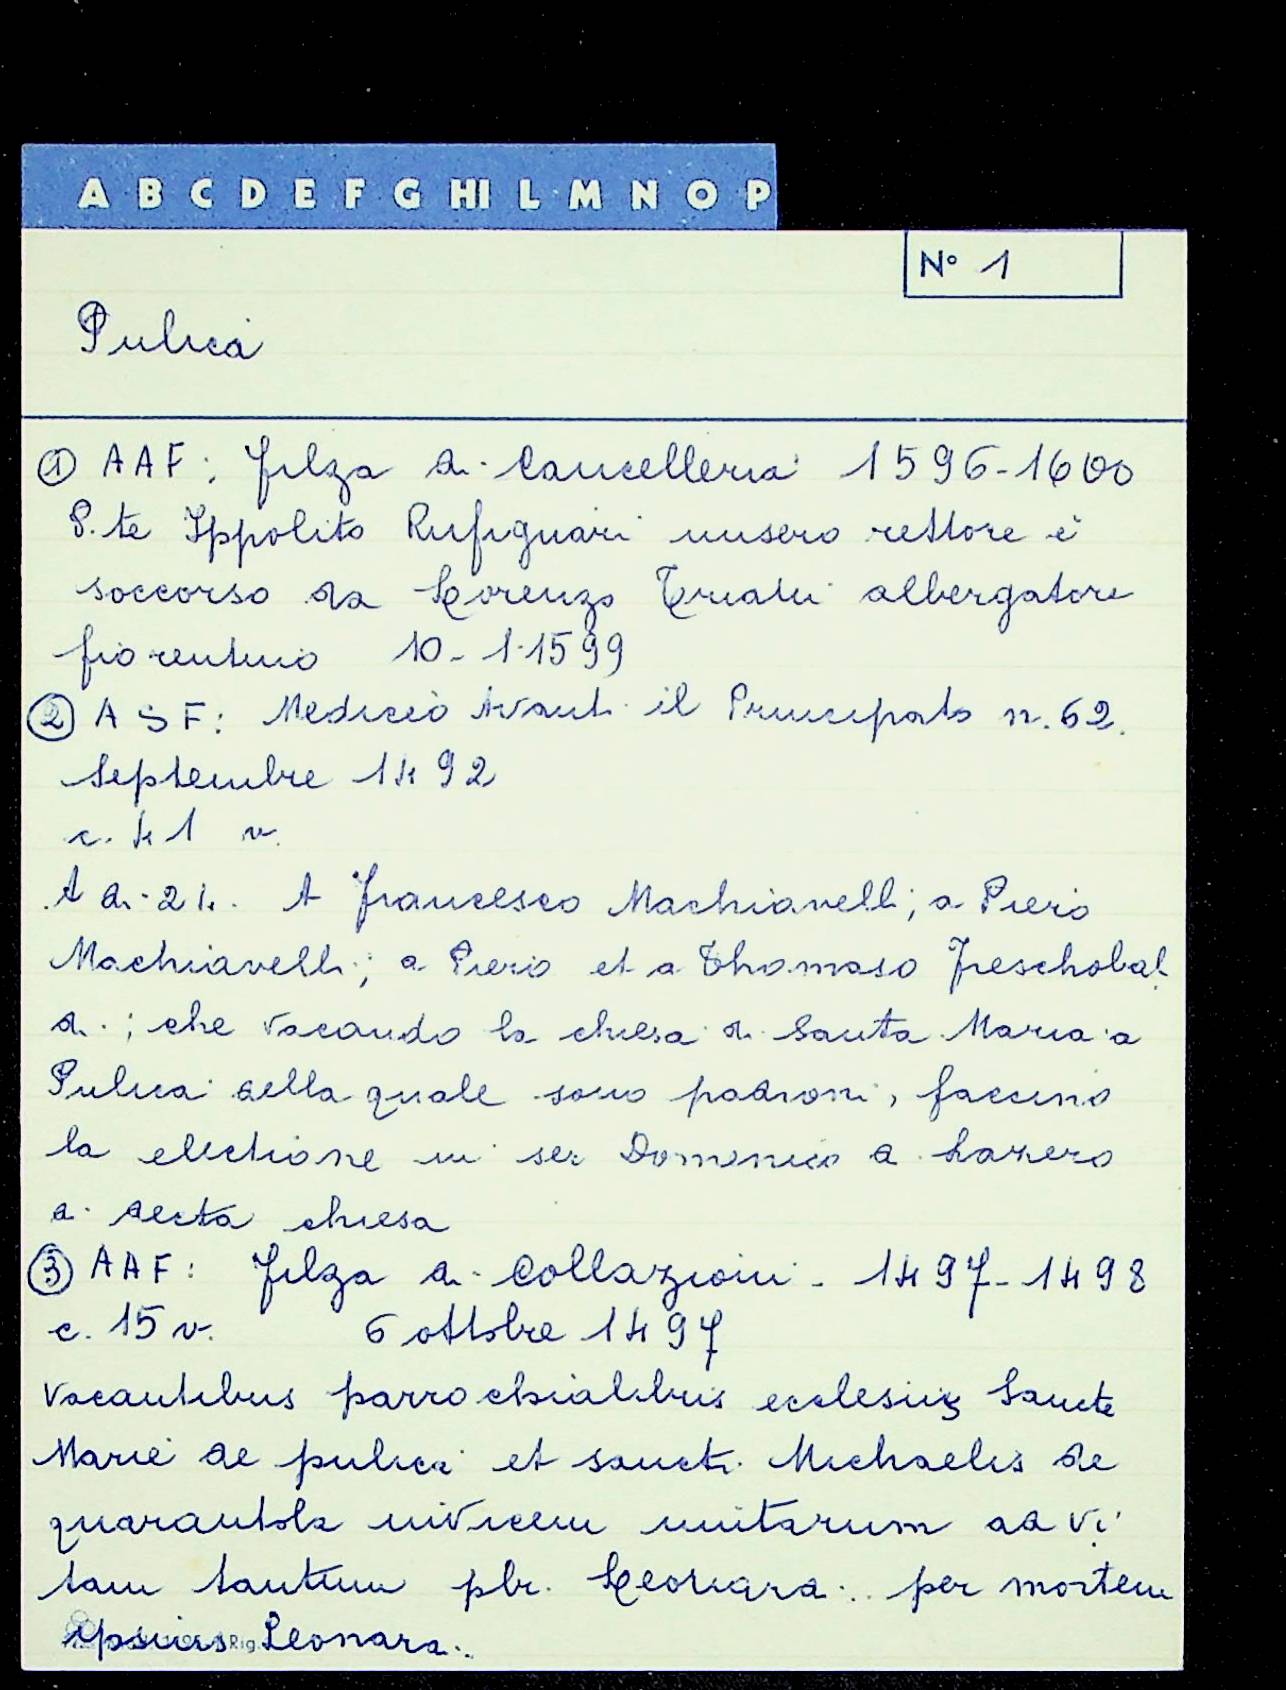 A B C D E F G HI L M N O P
N° 1
Pulica
① AAF: filza di Cancelleria 1596-1600
P.te Ippolito Rufignani misero rettore è
soccorso da Lorenzo albergatore
fiorentino 10-1-1599
② ASF: Mediceo Avanti il Principato n. 62.
Septembre 1492
c. 41 v.
A di 24. A Francesco Machiavelli; a Piero
Machiavelli; a Piero et a Thomaso Freschobal
di; che vacando la chiesa di Santa Maria a
Pulica della quale sono padroni, faccino
la electione in ser Domenico di Lazero
di decta chiesa
③ AAF: filza di Collazioni - 1497-1498
c. 15 v. 6 ottobre 1497
Vacantibus parrochialibus ecclesiis Sancte
Marie de pulica et sancti Michaelis de
quarantola invicem unitarum ad vi
tam tantum pbr. Leonardi per mortem
ipsius Leonardi.
Rig.